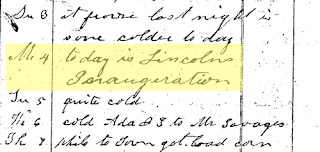 Su 3 it froze last night is
some colder to day
Mo 4 to day is Lincolns
Inaugeration
Tu 5 quite cold
We 6 cold Ada & S to Mr Savages
Th 7 phils to Town got load corn